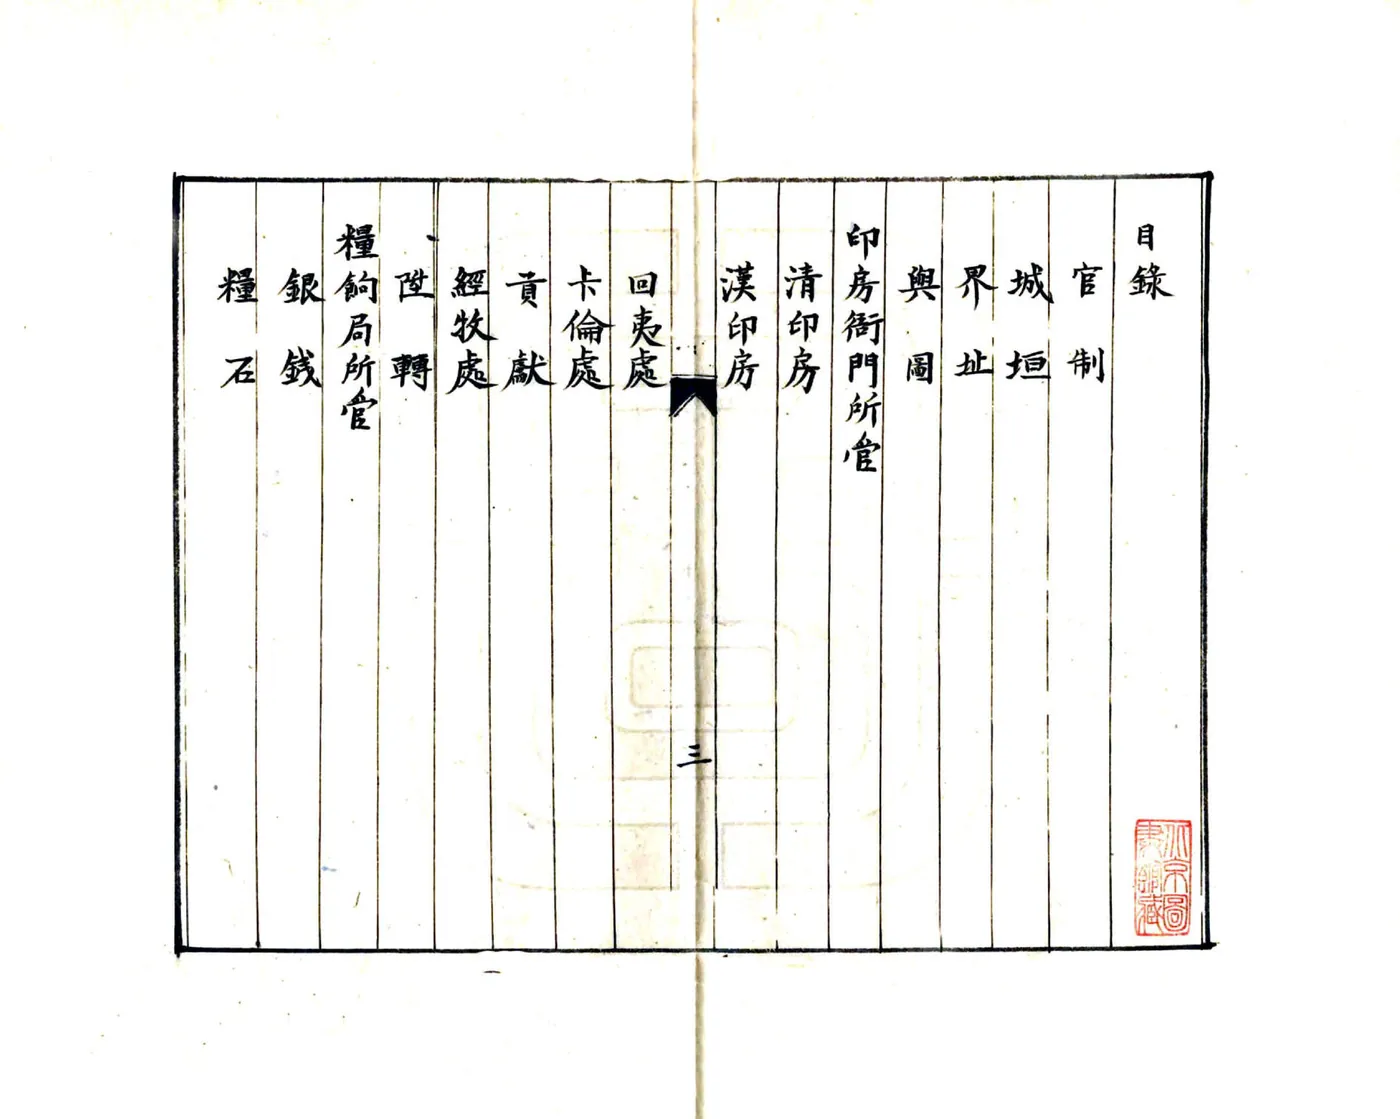 目錄
官制
城垣
界址
輿圖
印房衙門所管
清印房
漢印房
三
回夷處
卡倫處
貢獻
經牧處
陞轉
糧餉局所管
銀錢
糧石
北京圖書館藏